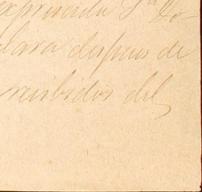 expresada Sra. Do-
clara despues de
recibidos del